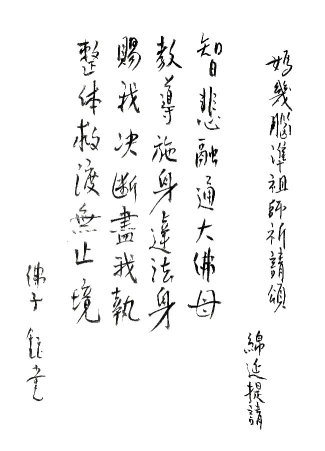 媽幾腦準祖師祈請頌
綿延提請
智悲融通大佛母
教導施身達法身
賜我决断盡我執
整体救渡無止境
佛子